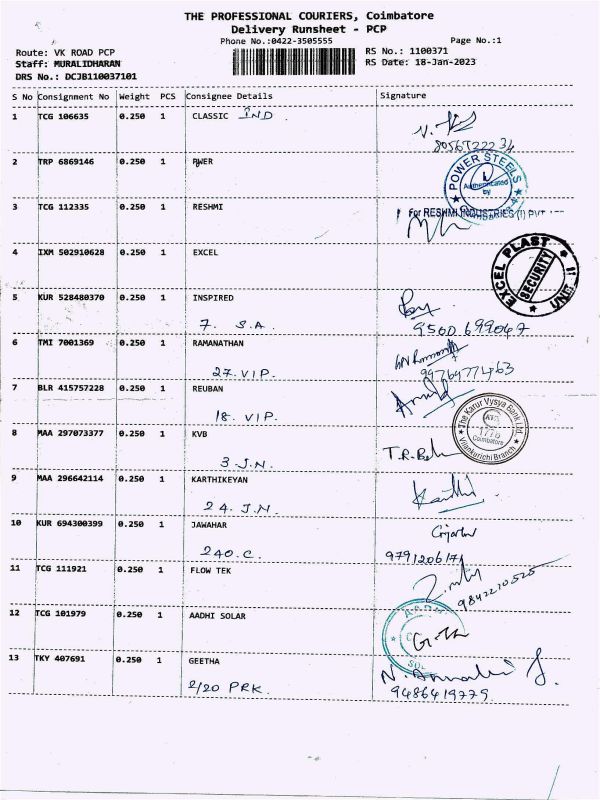 THE PROFESSIONAL COURIERS, Coimbatore
Delivery Runsheet - PCP
Phone No.:0422-3505555 Page No.:1
Route: VK ROAD PCP RS No.: 1100371
Staff: MURALIDHARAN RS Date: 18-Jan-2023
DRS No.: DCJB110037101
S No Consignment No Weight PCS Consignee Details Signature
1 TCG 106635 0.250 1 CLASSIC IND
2 TRP 6869146 0.250 1 PWER
POWER STEELS
Authenticated by
3 TCG 112335 0.250 1 RESHMI
For RESHMI INDUSTRIES (I) PVT
4 IXM 502910628 0.250 1 EXCEL
EXCEL PLAST UNIT II
SECURITY
5 KUR 528480370 0.250 1 INSPIRED
7. S.A.
6 TMI 7001369 0.250 1 RAMANATHAN
27. VIP.
7 BLR 415757228 0.250 1 REUBAN
18. VIP.
8 MAA 297073377 0.250 1 KVB
The Karur Vysya Bank Ltd.
1776
Coimbatore
Vilankurichi Branch
3 J.N.
9 MAA 296642114 0.250 1 KARTHIKEYAN
24. J.N.
10 KUR 694300399 0.250 1 JAWAHAR
240.C.
11 TCG 111921 0.250 1 FLOW TEK
9842210525
12 TCG 101979 0.250 1 AADHI SOLAR
13 TKY 407691 0.250 1 GEETHA
2/20 PRK.
9486419779